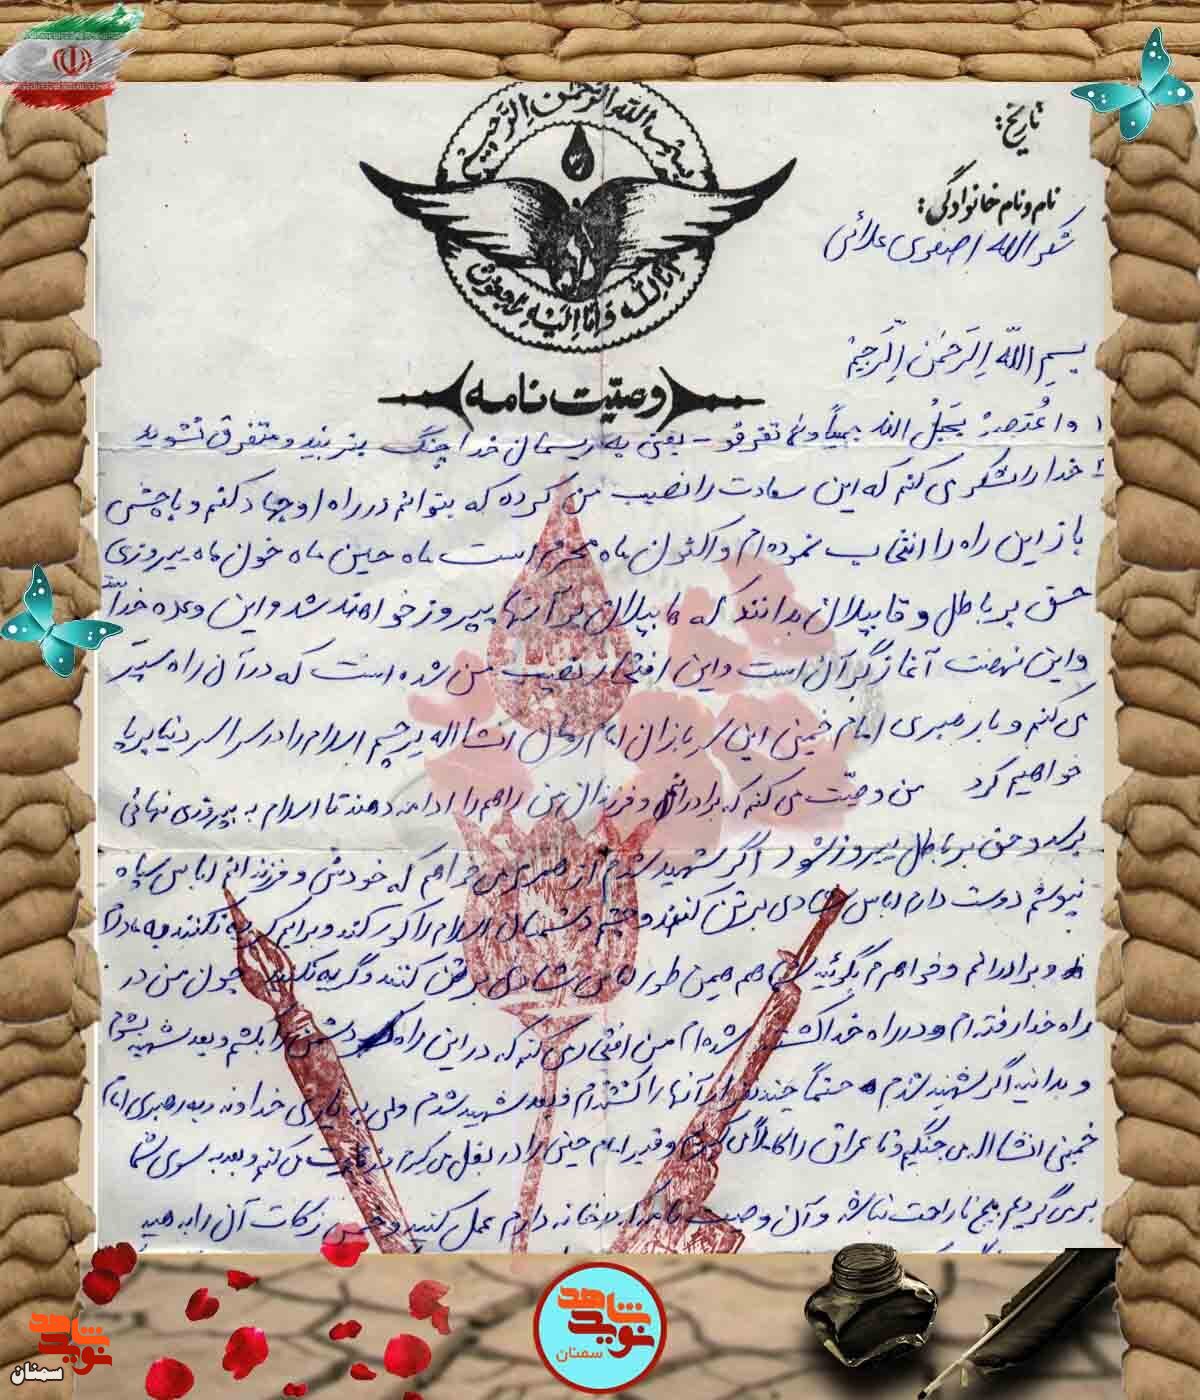 بسم الله الرحمن الرحیم
انا لله و انا الیه راجعون
تاریخ:
نام و نام خانوادگی:
شکراله اصغری علائی
وصیّت نامه
بسم اللّه الرّحمن الرّحیم
واعتصموا بحبل الله جمیعاً ولا تفرقو - یعنی به ریسمان خدا چنگ بزنید و متفرق نشوید
خدا را شکر می کنم که این سعادت را نصیب من کرده که بتوانم در راه او جهاد کنم و با چشمی
باز این راه را انتخاب نموده ام و اکنون ماه محرم است ماه حسین ماه خون ماه پیروزی
حق بر باطل و قابیلان بدانند که هابیلان بر آنها پیروز خواهند شد و این وعده خداست
و این نهضت آغازگر آن است و این افتخار نصیب من شده است که در آن راه سیر
می کنم و با رهبری امام خمینی این سربازان امام زمان انشااله پرچم اسلام را در سراسر دنیا برپا
خواهیم کرد من وصیّت می کنم که برادرانم و فرزندان من راهم را ادامه دهند تا اسلام به پیروزی نهائی
برسد و حق بر باطل پیروز شود اگر شهید شدم از همسرم می خواهم که خودش و فرزندانم لباس سیاه
نپوشم دوست دارم لباس شادی بر تن کنند و چشم دشمنان اسلام را کور کند و برایم گریه نکنند به مادرم
و برادرانم و خواهرم بگوئید شما هم همین طور لباس شادی بر تن کنند و گریه نکنید چون من در
راه خدا رفته ام و در راه خدا کشته شده ام من افتخار می کنم که در این راه دشمن را بکشم و بعد شهید بشوم
و بدانید اگر شهید شدم حتماً چند نفر از آنها را کشته ام و بعد شهید شدم ولی به یاری خداوند و به رهبری امام
خمینی انشااله می جنگیم و تا عراق را و قبر امام حسین را در بغل می گیرم زیارت می کنم و بعد به سوی شما
برمی گردم هیچ ناراحت نباشد و آن وصیت نامه که در خانه دارم عمل کنید و خمس زکات آن را بدهید
شاهد
نوید
سمنان
شاهد
نوید
سمنان